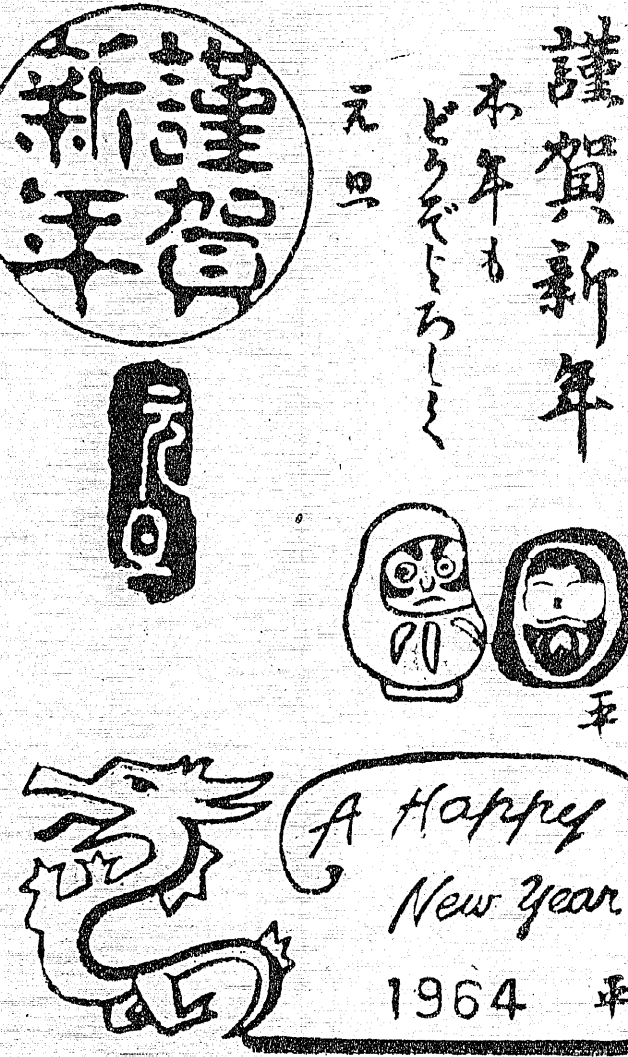 謹賀新年
本年も
どうぞよろしく
元旦
謹賀
新年
元旦
平
A Happy
New Year
1964 平